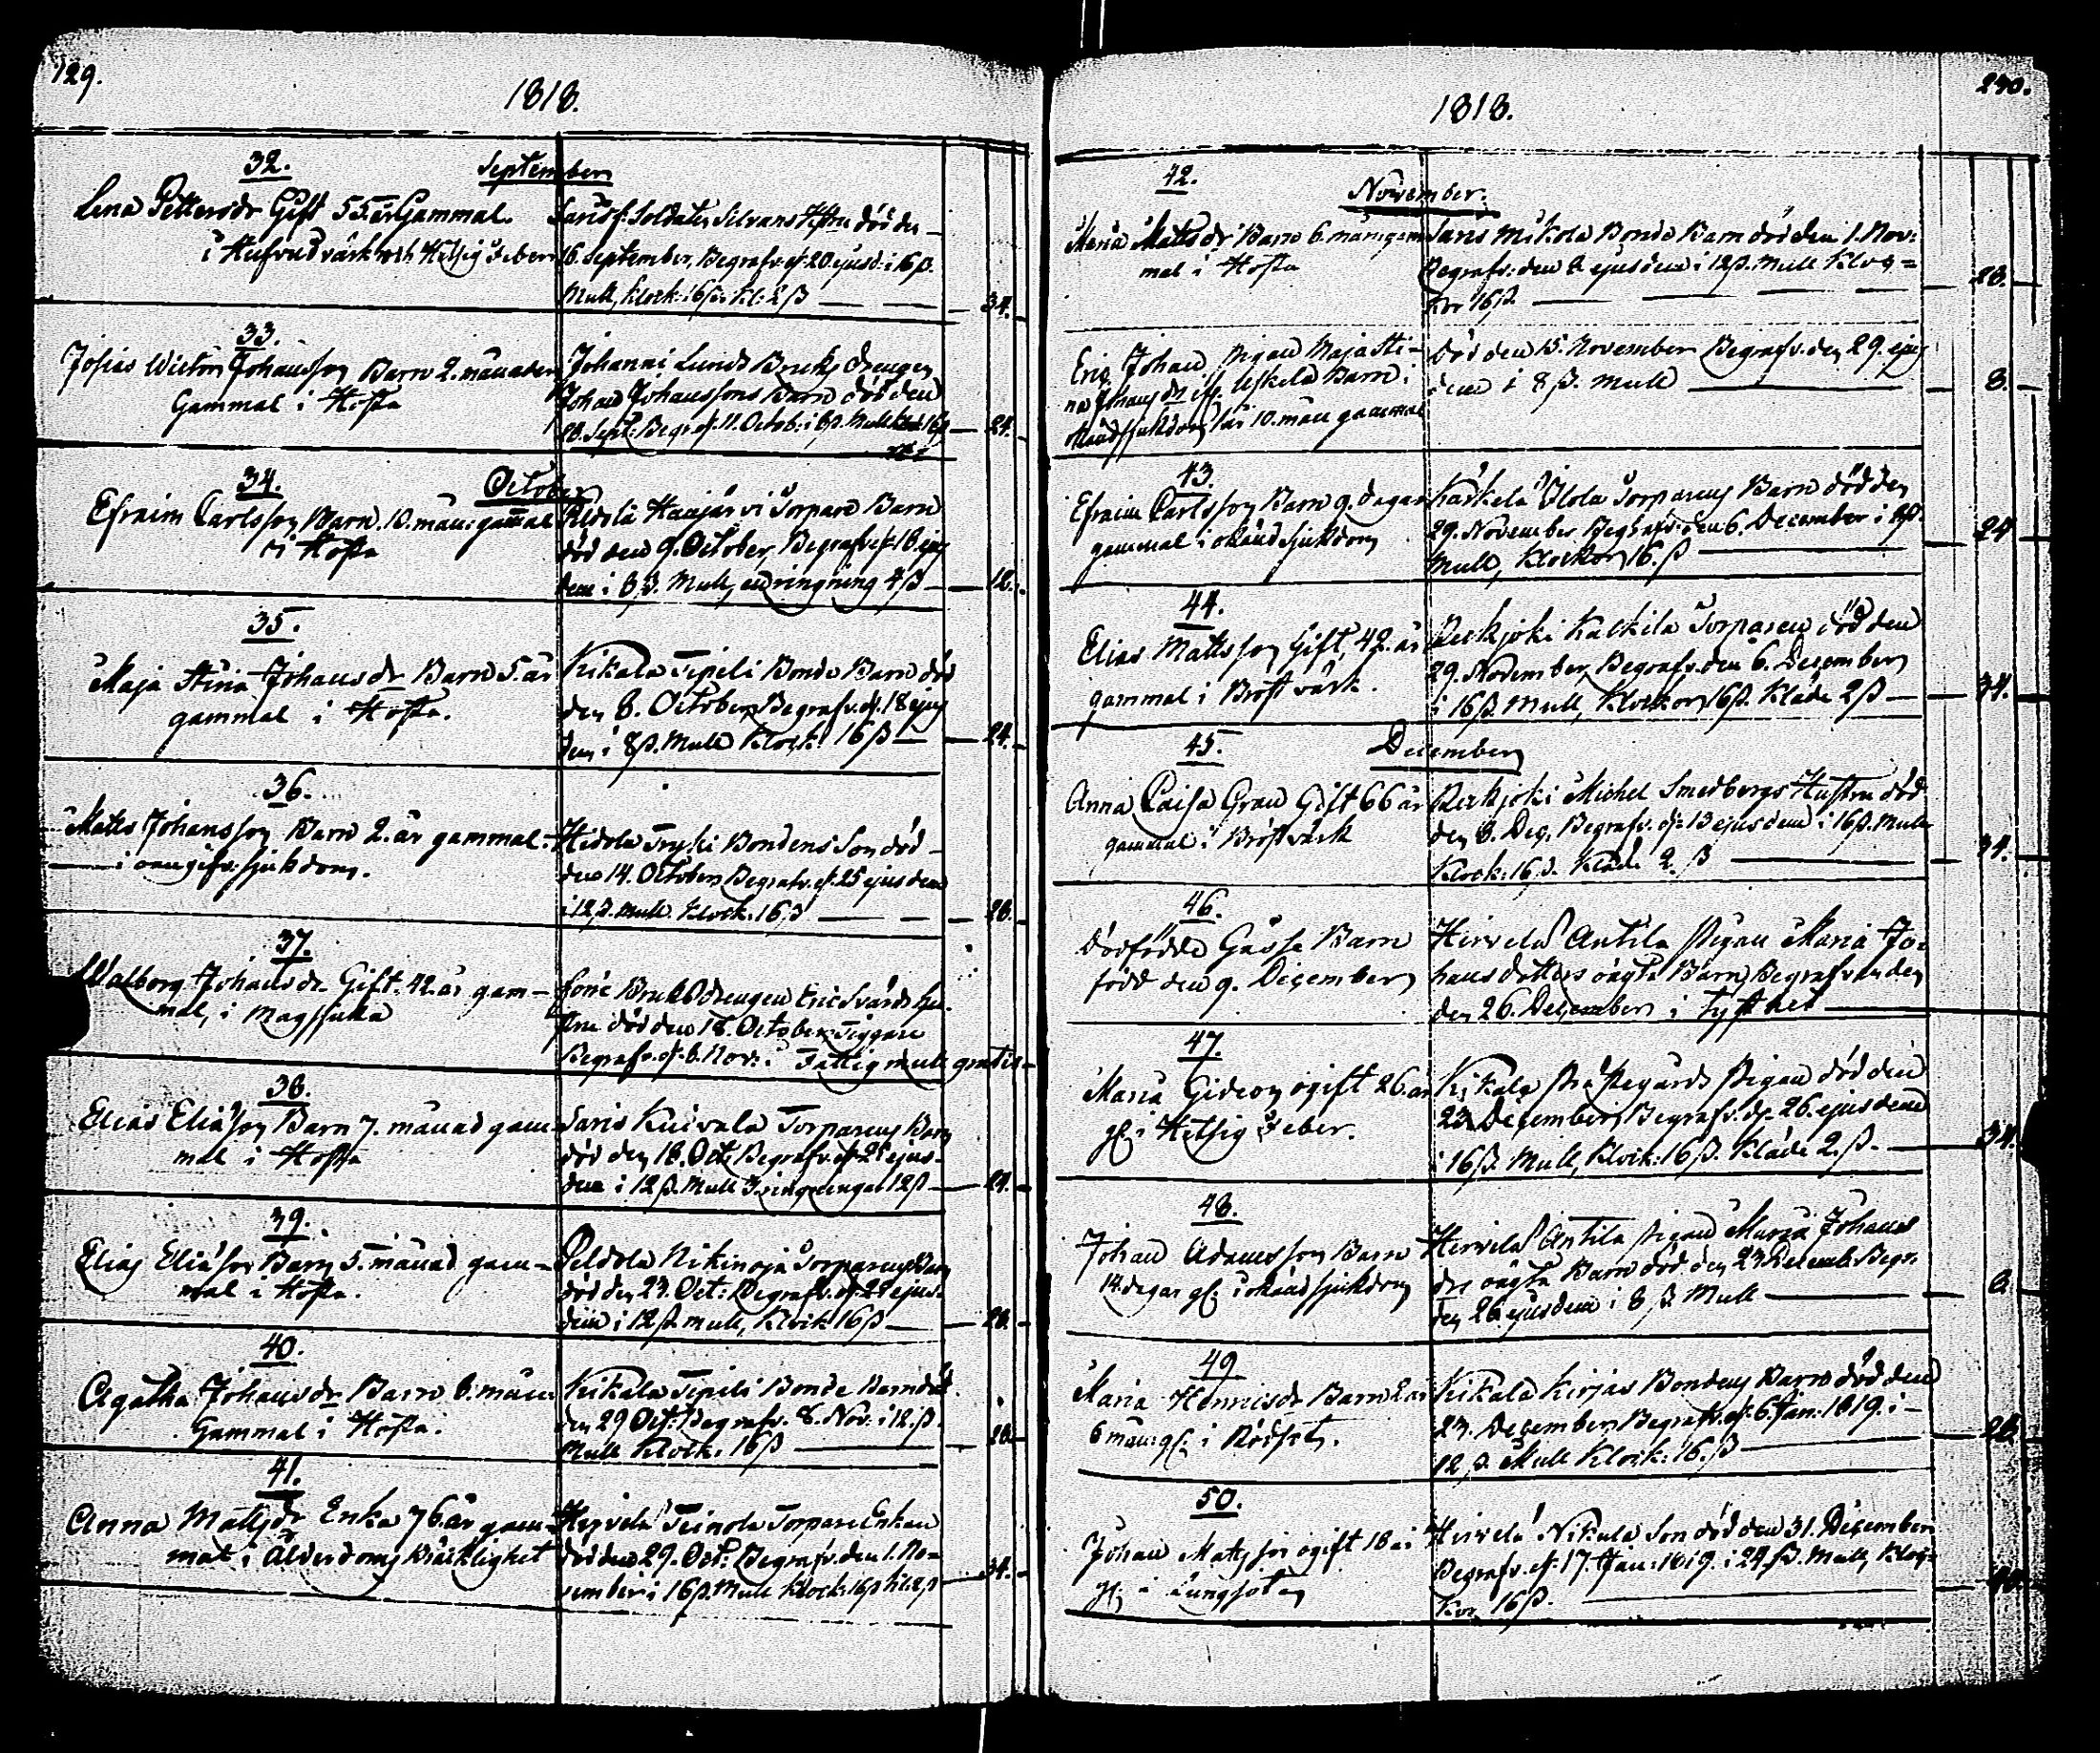 129.
1818.
32.
September
Lena Pettersdr Gift 55 år Gammal.
i Hufvudvärk och Hetsig Feber
Saris f: Soldaten Silvans Hustru död den
16 September, Begrafv: d. 20 ejusd: i 16 ß.
Mull, Klock: 16 ß. Kl: 2 ß
34.
33.
Josias Wictor Johansson Barn 2. månader
Gammal i Hosta
Johannis Lunds Bruks drengen
Johan Johanssons Barn död den
28. Sept: Begraf. d. 11. Octob: i 8 ß. Mull Klock: 16 ß
24.
34.
October
Efraim Carlsson Barn. 10. mån: gammal
i Hosta
Haajärvi Torpare Barn
död den 9. October, Begrafv: d. 18 ejus
dem i 8 ß. Mull, en ringning 4 ß
12.
35.
Maja Stina Johansdr Barn 5. år
gammal i Hosta.
Kikala Sipeli Bonde Barn död
den 8. October Begrafv. d. 18 ejus
dem i 8 ß. Mull Klock: 16 ß
24.
36.
Matts Johansson Barn 2. år gammal
i oangifv: sjukdom.
Hidola Tryki Bondens Son död
den 14. October Begrafv. d. 25 ejusdem
i 12 ß. Mull. Klock. 16 ß
28.
37.
Walborg Johansdr Gift. 42. år gam-
mal, i Magsjuka
Bruksdrengen Eric Svärds hu-
stru död den 18. October Tiggare
Begrafv. d. 8. Nov: i Fattigmull gratis
38.
Elias Eliasson Barn 7. månad gam-
mal i Hosta
Saris Kuivala Torparens Barn
död den 18. Oct: Begrafv. d. ejus-
dem i 12 ß. Mull 3 ringningar 12 ß
24.
39.
Elias Eliasson Barn 5. månad gam-
mal i Hosta.
Peldola Nikinoja Torparens Barn
död den 23. Oct: Begrafv. d. ejus-
dem i 12 ß mull, Klock 16 ß
28.
40.
Agatha Johansdr Barn 8. mån:
Gammal i Hosta.
Kikala Sipeli Bonde Barn död
den 29 Oct: Begrafv. 8. Nov: i 12. ß.
Mull Klock. 16 ß
28.
41.
Anna Mattsdr Enka 76. år gam-
mal i Ålderdoms Bräcklighet
Hirvelä Teinola Torpare Enkan
död den 29. Oct: Begrafv. den 1. No-
vember i 16 ß. Mull Klock: 16 ß Kl: 2 ß
34.
230.
1818.
42.
November.
Maria Mattsdr Barn 6. mån: gam-
mal i Hosta
Saris Mikola Bonde Barn död den 1. Nov:
Begrafv: den 8 ejusdem i 12 ß. Mull Kloc=
kor 16 ß.
28.
Eric Johan, Pigan Maja Sti-
na Johansdr ifr. Uskela Barn i
okänd sjukdom, 1 år 10. mån gammal
död den 15. November Begrafv. den 29. ejus
dem i 8 ß. Mull
8.
43.
Efraim Carlsson Barn 9. dagar
gammal i okänd sjukdom
Kärkelä Ilola Torparens Barn död den
29. November Begrafv: den 6. December i 8 ß.
Mull, Klockor 16. ß
24
44.
Elias Mattsson Gift, 42. år
gammal i Bröstvärk.
Perkjoki Kalkila Torparen död den
29. November Begrafv. den 6. December
i 16 ß. Mull, Klockor 16 ß. Kläde 2 ß
34.
45.
December
Anna Caisa Gran Gift 66 år
gammal i Bröstvärk
Perkjoki Michel Smedbergs Hustru död
den 8. Dec, Begrafv. d. 13 ejusdem i 16 ß. Mull
Klock: 16 ß. Kläde 2. ß
34.
46.
Dödfödde Gåsse Barn
född den 9. December
Hirvelä Antila Pigan Maria Jo-
hansdotters oägta Barn, Begrafven den
den 26. December i tysthet
47.
Maria Gideon ogift 26. år
gl: i Hetsig Feber.
Kikala Prästegårds Pigan död den
December, Begrafv. d. 26. ejusdem
i 16 ß. Mull, Klock: 16 ß. Kläde 2. ß.
34.
48.
Johan Adamsson Barn
14. dagar gl: i okänd sjukdom
Hirvelä Antila Pigan Maria Johans
dr oägta Barn död den 23 Decemb: Begr.
den 26. ejusdem i 8 ß. Mull
8.
49
Maria Henricsdr Barn 2. år
6 mån: gl: i Rödsot.
Kikala Kirjas Bondens Barn död den
23. December Begrafv. d. 6. Jan: 1819. i
12 ß. Mull Klock: 16. ß
28
50.
Johan Mattsson ogift 18 år
gl: i Lungsot
Hirvelä Nikula Son död den 31. December
Begrafv. d. 17. Jan: 1819. i 24 ß. Mull, Kloc=
kor 16 ß.
40.